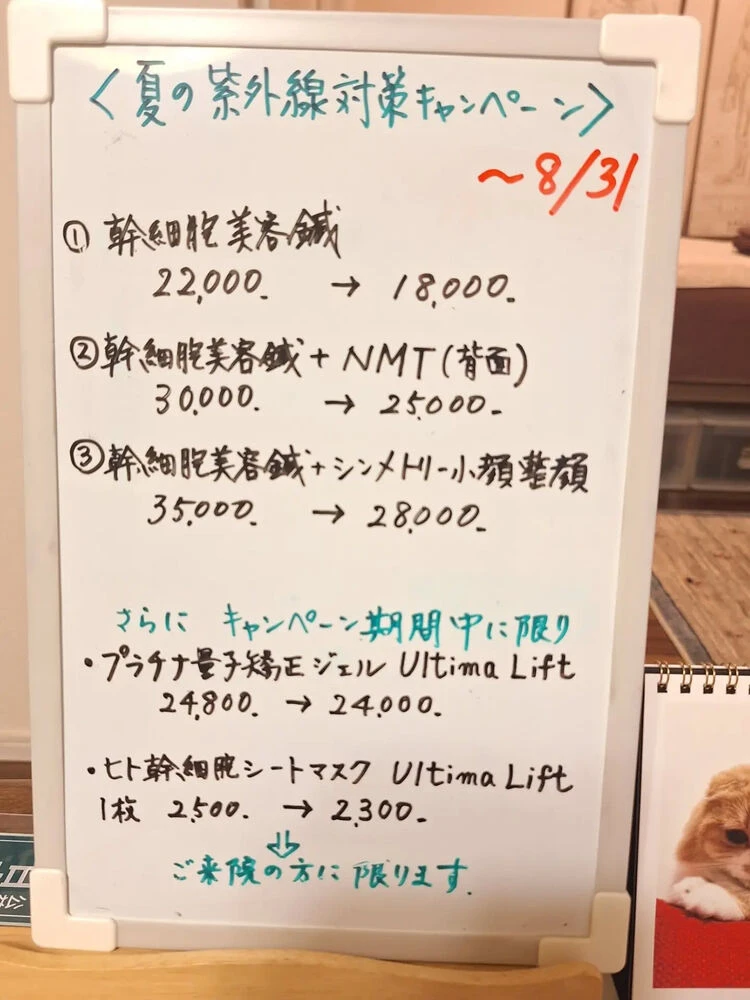 〈夏の紫外線対策キャンペーン〉
～8/31
① 幹細胞美容鍼
22,000. → 18,000.
② 幹細胞美容鍼 + NMT(背面)
30,000. → 25,000.
③ 幹細胞美容鍼+シンメトリー小顔整顔
35,000. → 28,000.
さらに キャンペーン期間中に限り
・プラチナ量子矯正ジェル Ultima Lift
24,800. → 24,000.
・ヒト幹細胞シートマスク Ultima Lift
1枚 2,500. → 2,300.
⇩
ご来院の方に限ります.